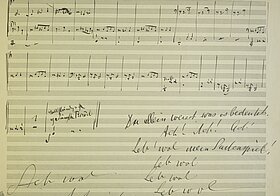 Du allein weisst was es bedeutet.
Ach! Ach! Ach!
Leb' wol mein Saitenspiel!
Leb wol
Leb wol
Leb wol
Ach wol